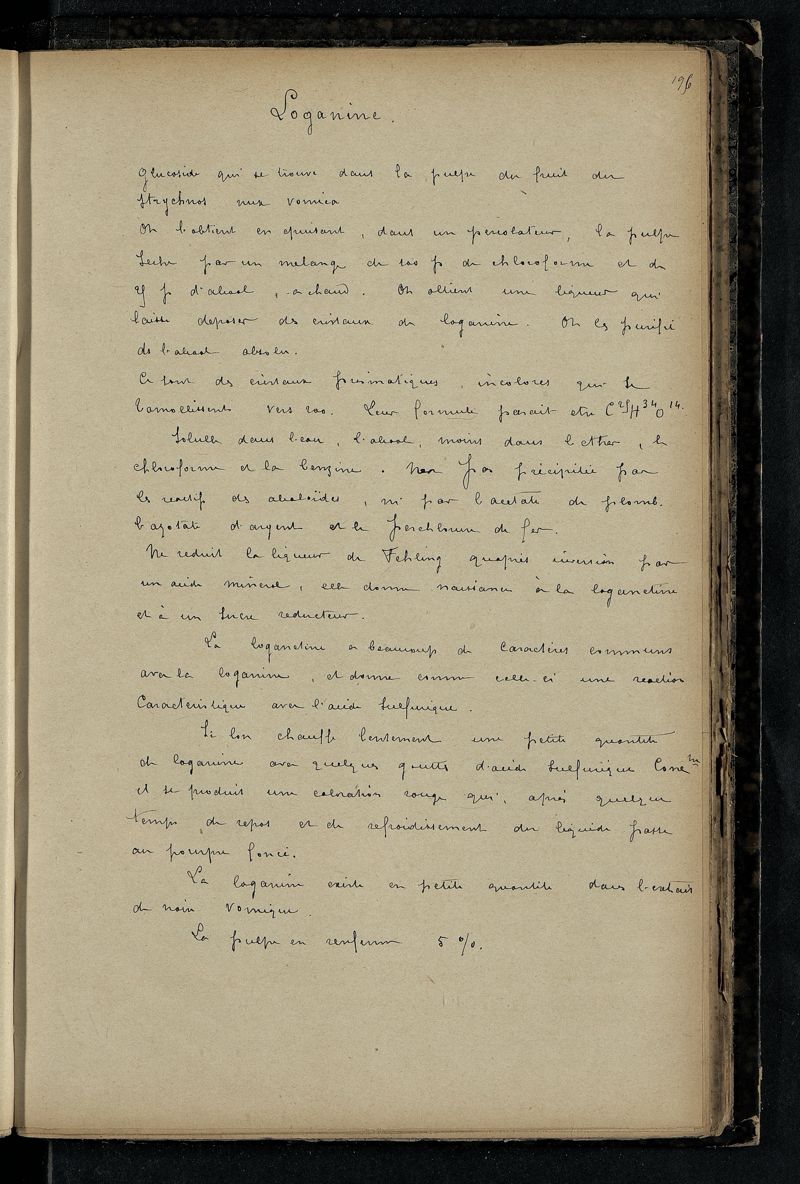 196
Loganine.
Glucoside qui se trouve dans la pulpe du fruit du
Strychnos nux vomica
On l'obtient en épuisant, dans un percolateur, la pulpe
seche par un melange de 100 p de chloroforme et de
25 p d'alcool, a chaud. On obtient une liqueur qui
laisse deposer des cristaux de loganine. On les purifie
ds l'alcool absolu.
Ce sont des cristaux prismatiques, incolores qui se
ramollissent vers 200. Leur formule parait etre C25H34O14.
Soluble dans l'eau, l'alcool, moins dans l'ether, le
chloroforme et la benzine. Pas précipitée par
les reactifs des alcaloïdes, ni par l'acetate de plomb.
l'azotate d'argent et le perchlorure de fer.
Ne reduit la liqueur de Fehling qu'après inversion par
un acide mineral, elle donne naissance à la loganetine
et à un sucre reducteur.
La loganetine a beaucoup de caractères communs
avec la loganine, et donne comme celle-ci une reaction
caracteristique avec l'acide sulfurique.
Si l'on chauffe lentement une petite quantité
de loganine avec quelques gouttes d'acide sulfurique
il se produit une coloration rouge qui, après quelque
temps de repos et de refroidissement du liquide passe
au pourpre foncé.
La loganine existe en petite quantité dans l'extrait
de noix vomique.
La pulpe en renferme 5 %.